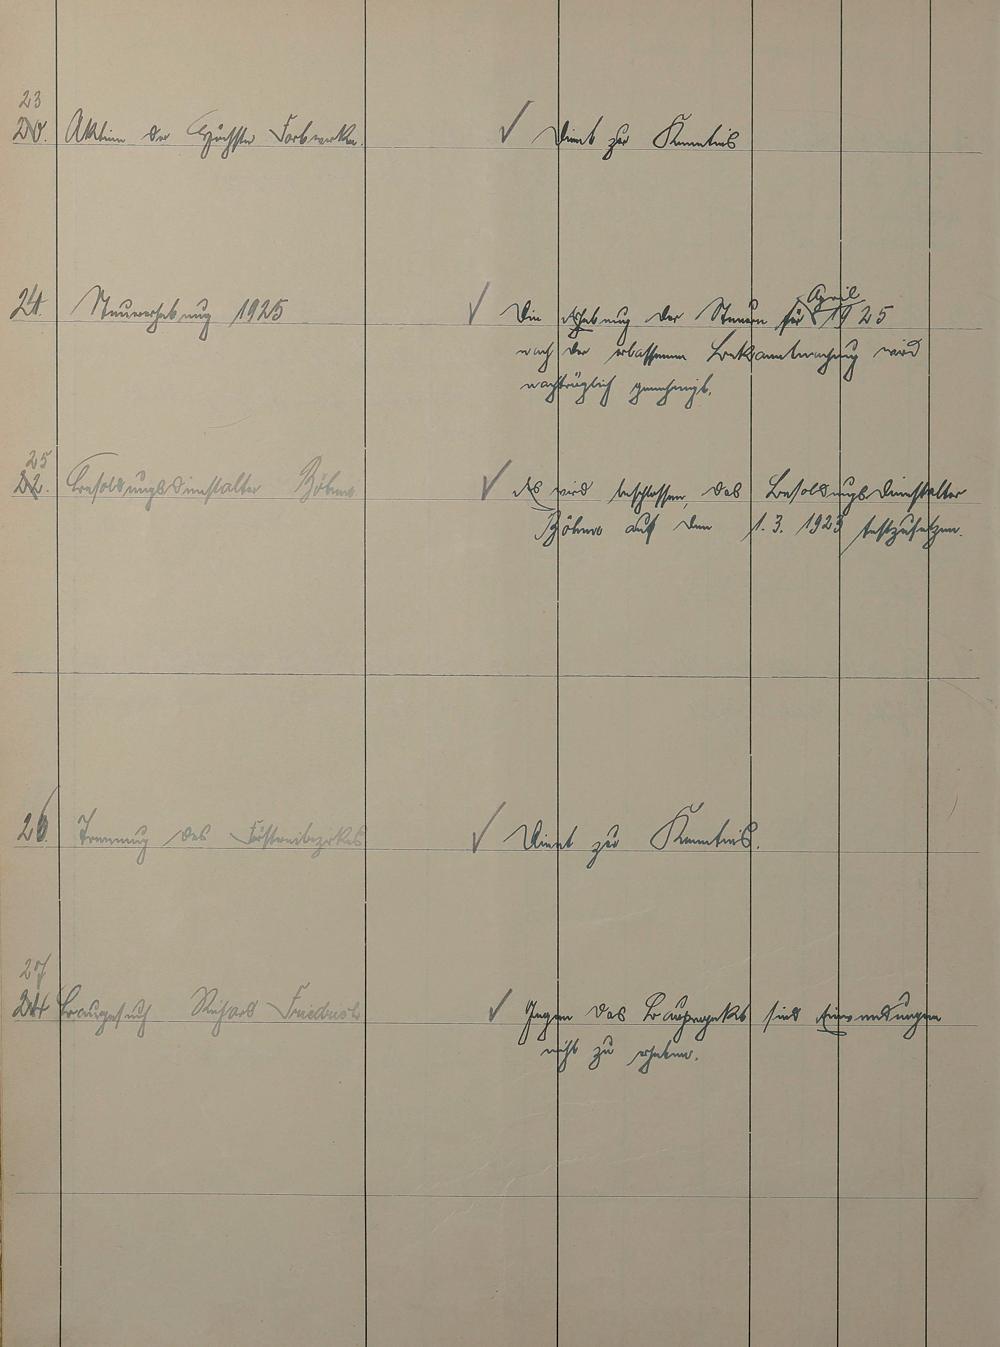 23
20. Aktien der Höchster Farbwerke.
✓ Dient zur Kenntnis
24. Steuererhebung 1925
✓ Die Erhebung der Steuern für April 1925
nach der erlassenen Bekanntmachung wird
nachträglich genehmigt.
25
22. Besoldungsdienstalter Böhme
✓ Es wird beschlossen, das Besoldungsdienstalter
Böhme auf den 1. 3. 1923 festzusetzen.
26. Trennung des Försterbezirkes
✓ Dient zur Kenntnis.
27
24 Baugesuch Richard Friedrich
✓ Gegen das Bauprojekt sind Einwendungen
nicht zu erheben.